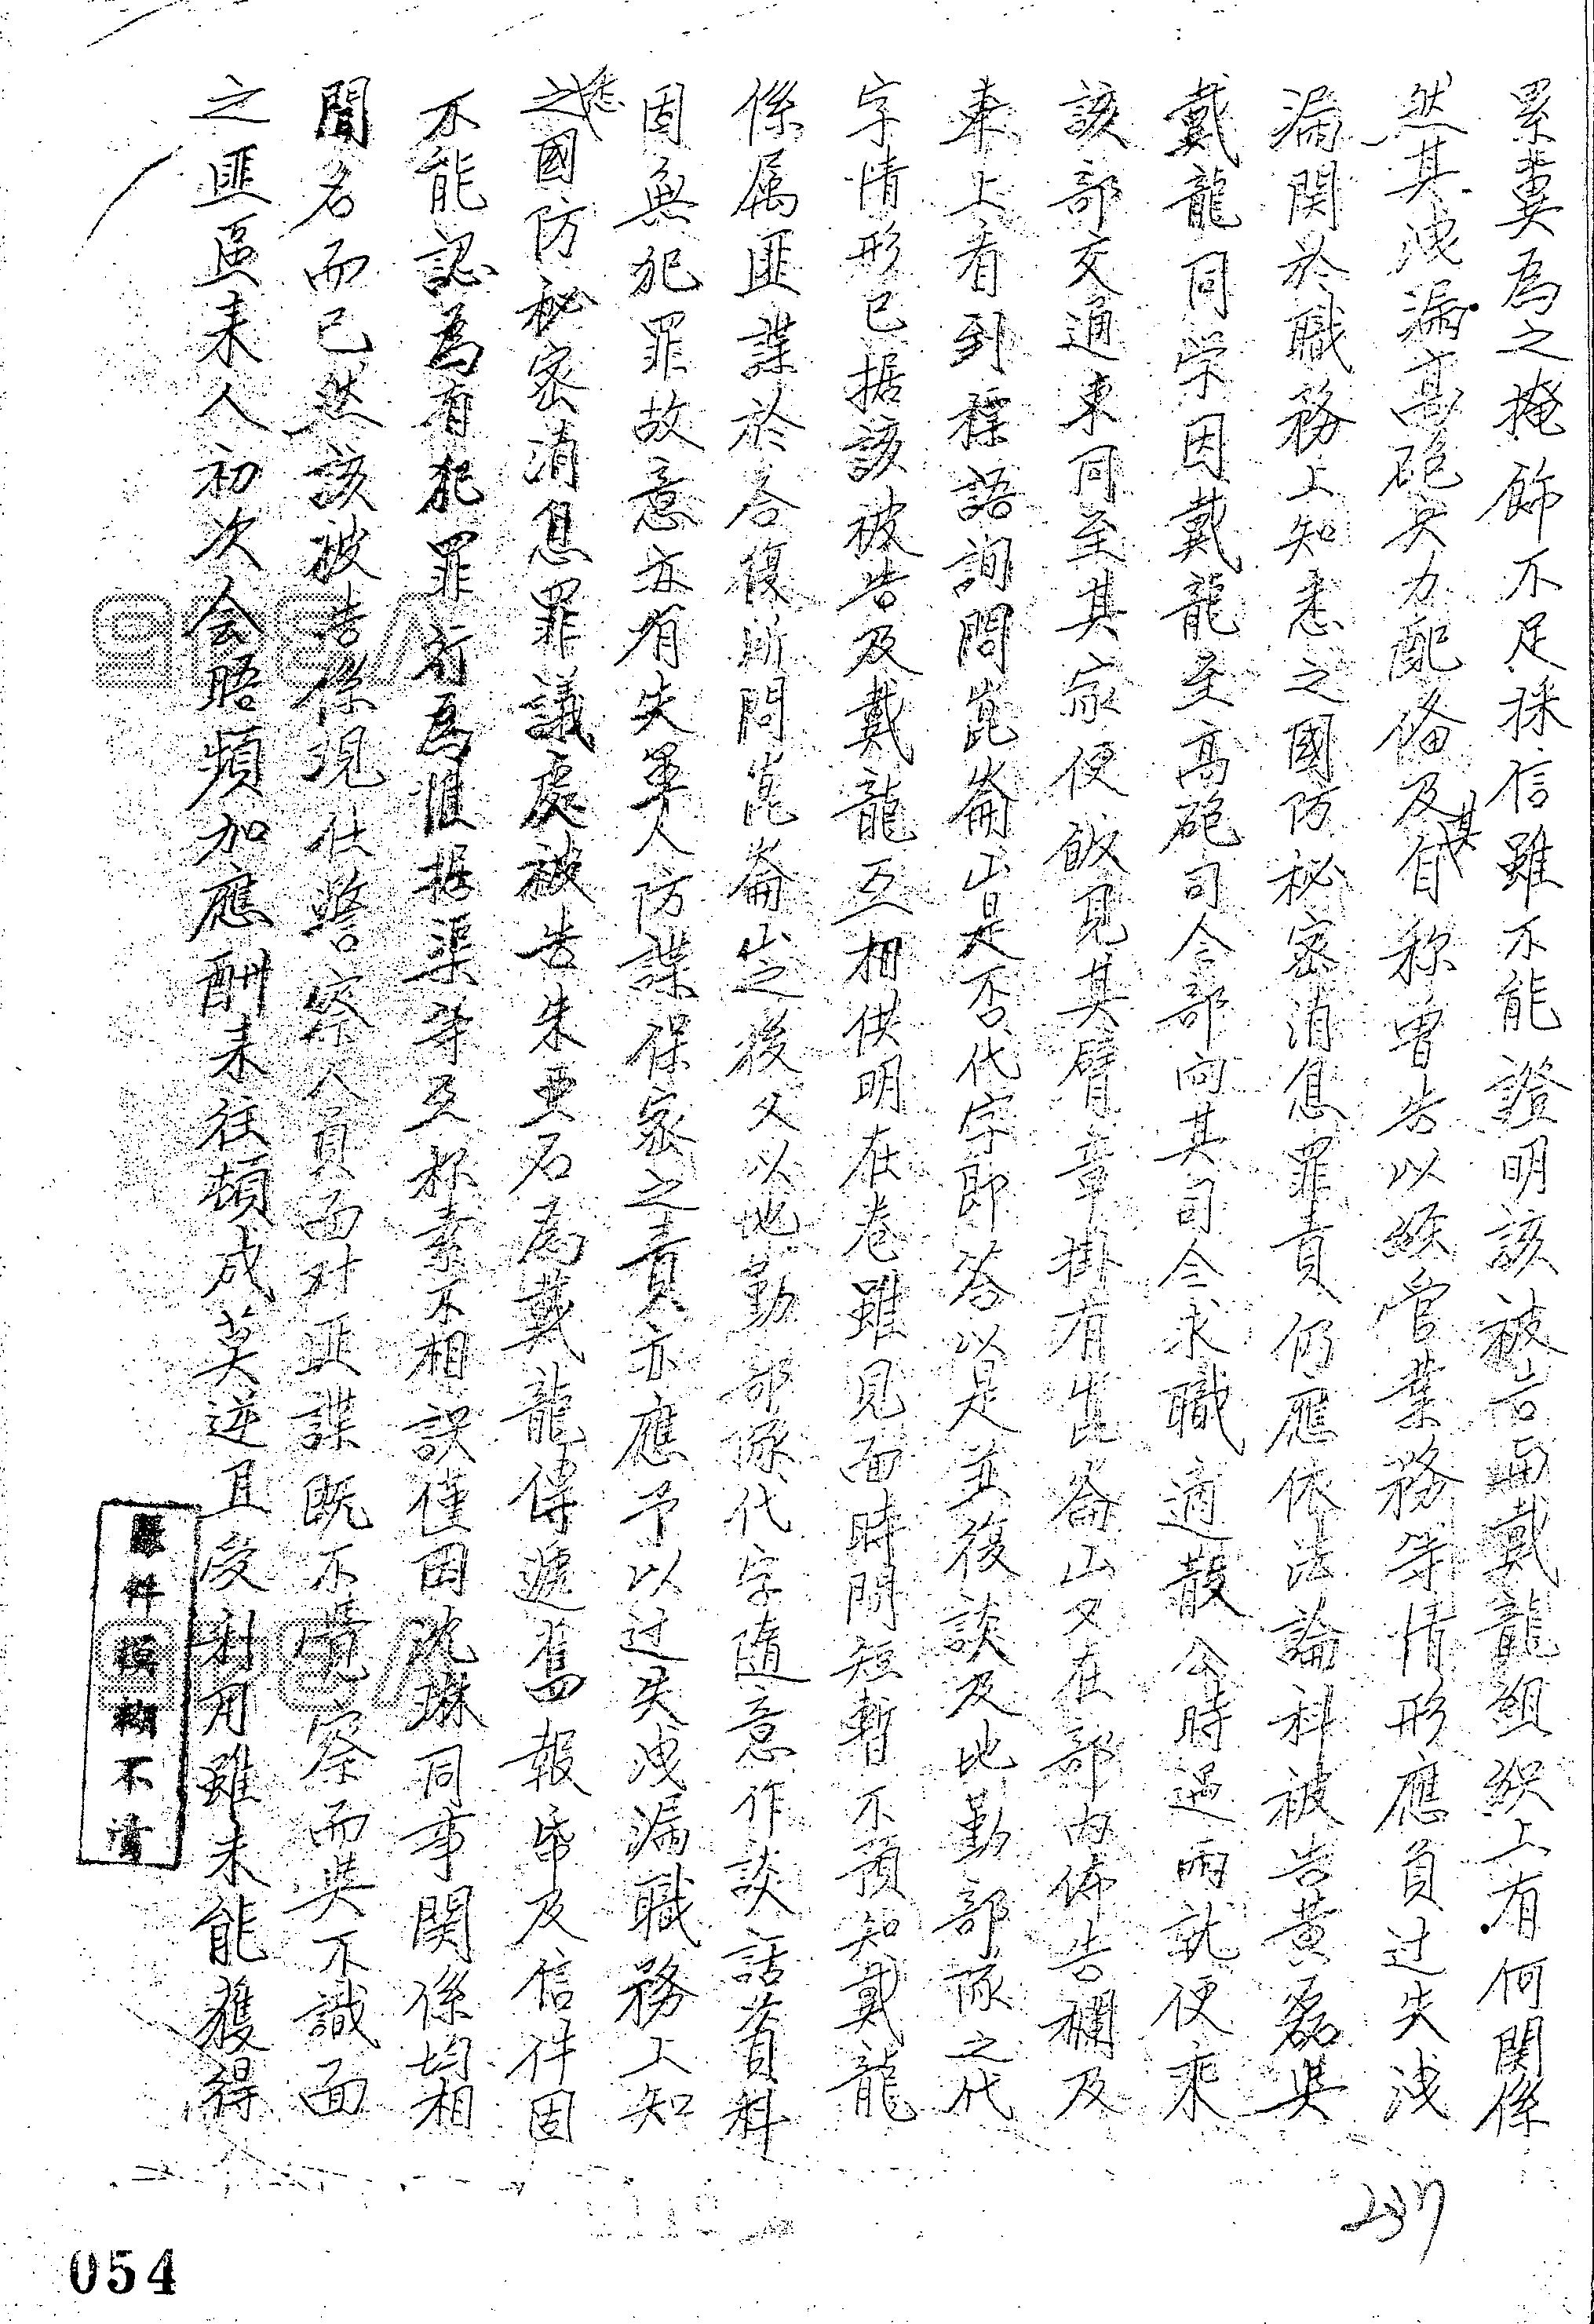 累冀為之掩飾不足採信雖不能證明該被告與戴龍組織上有何關係
然其洩漏高砲兵力配備及其自称曾告以經管業務等情形應負过失洩
漏関於職務上知悉之國防秘密消息罪責仍應依法論科被告黄磊與
戴龍同学因戴龍至高砲司令部向其司令求職適散公時遇雨就便乘
該部交通車同至其家便飯見其臂章掛有崑崙山又在部内佈告欄及
車上看到標語詢問崑崙山是否代字即答以是並復談及地勤部隊之代
字情形已据該被告及戴龍互相供明在卷雖見面時間短暫不預知戴龍
係属匪諜於答復所問崑崙山之後又以地勤部隊代字隨意作談話資料
固無犯罪故意亦有失軍人防諜保密之責亦應予以过失洩漏職務上知
悉之國防秘密消息罪議處被告朱亜石為戴龍傳遞舊報帋及信件固
不能認為有犯罪行為惟据渠等互称素不相識僅因沈琳同事関係均相
聞名而已然該被告係現仕警察人員面对匪諜既不覺察而與不識面
之匪區来人初次会晤頻加應酬来往頓成莫逆且受利用雖未能獲得
原件模糊不清
237
054